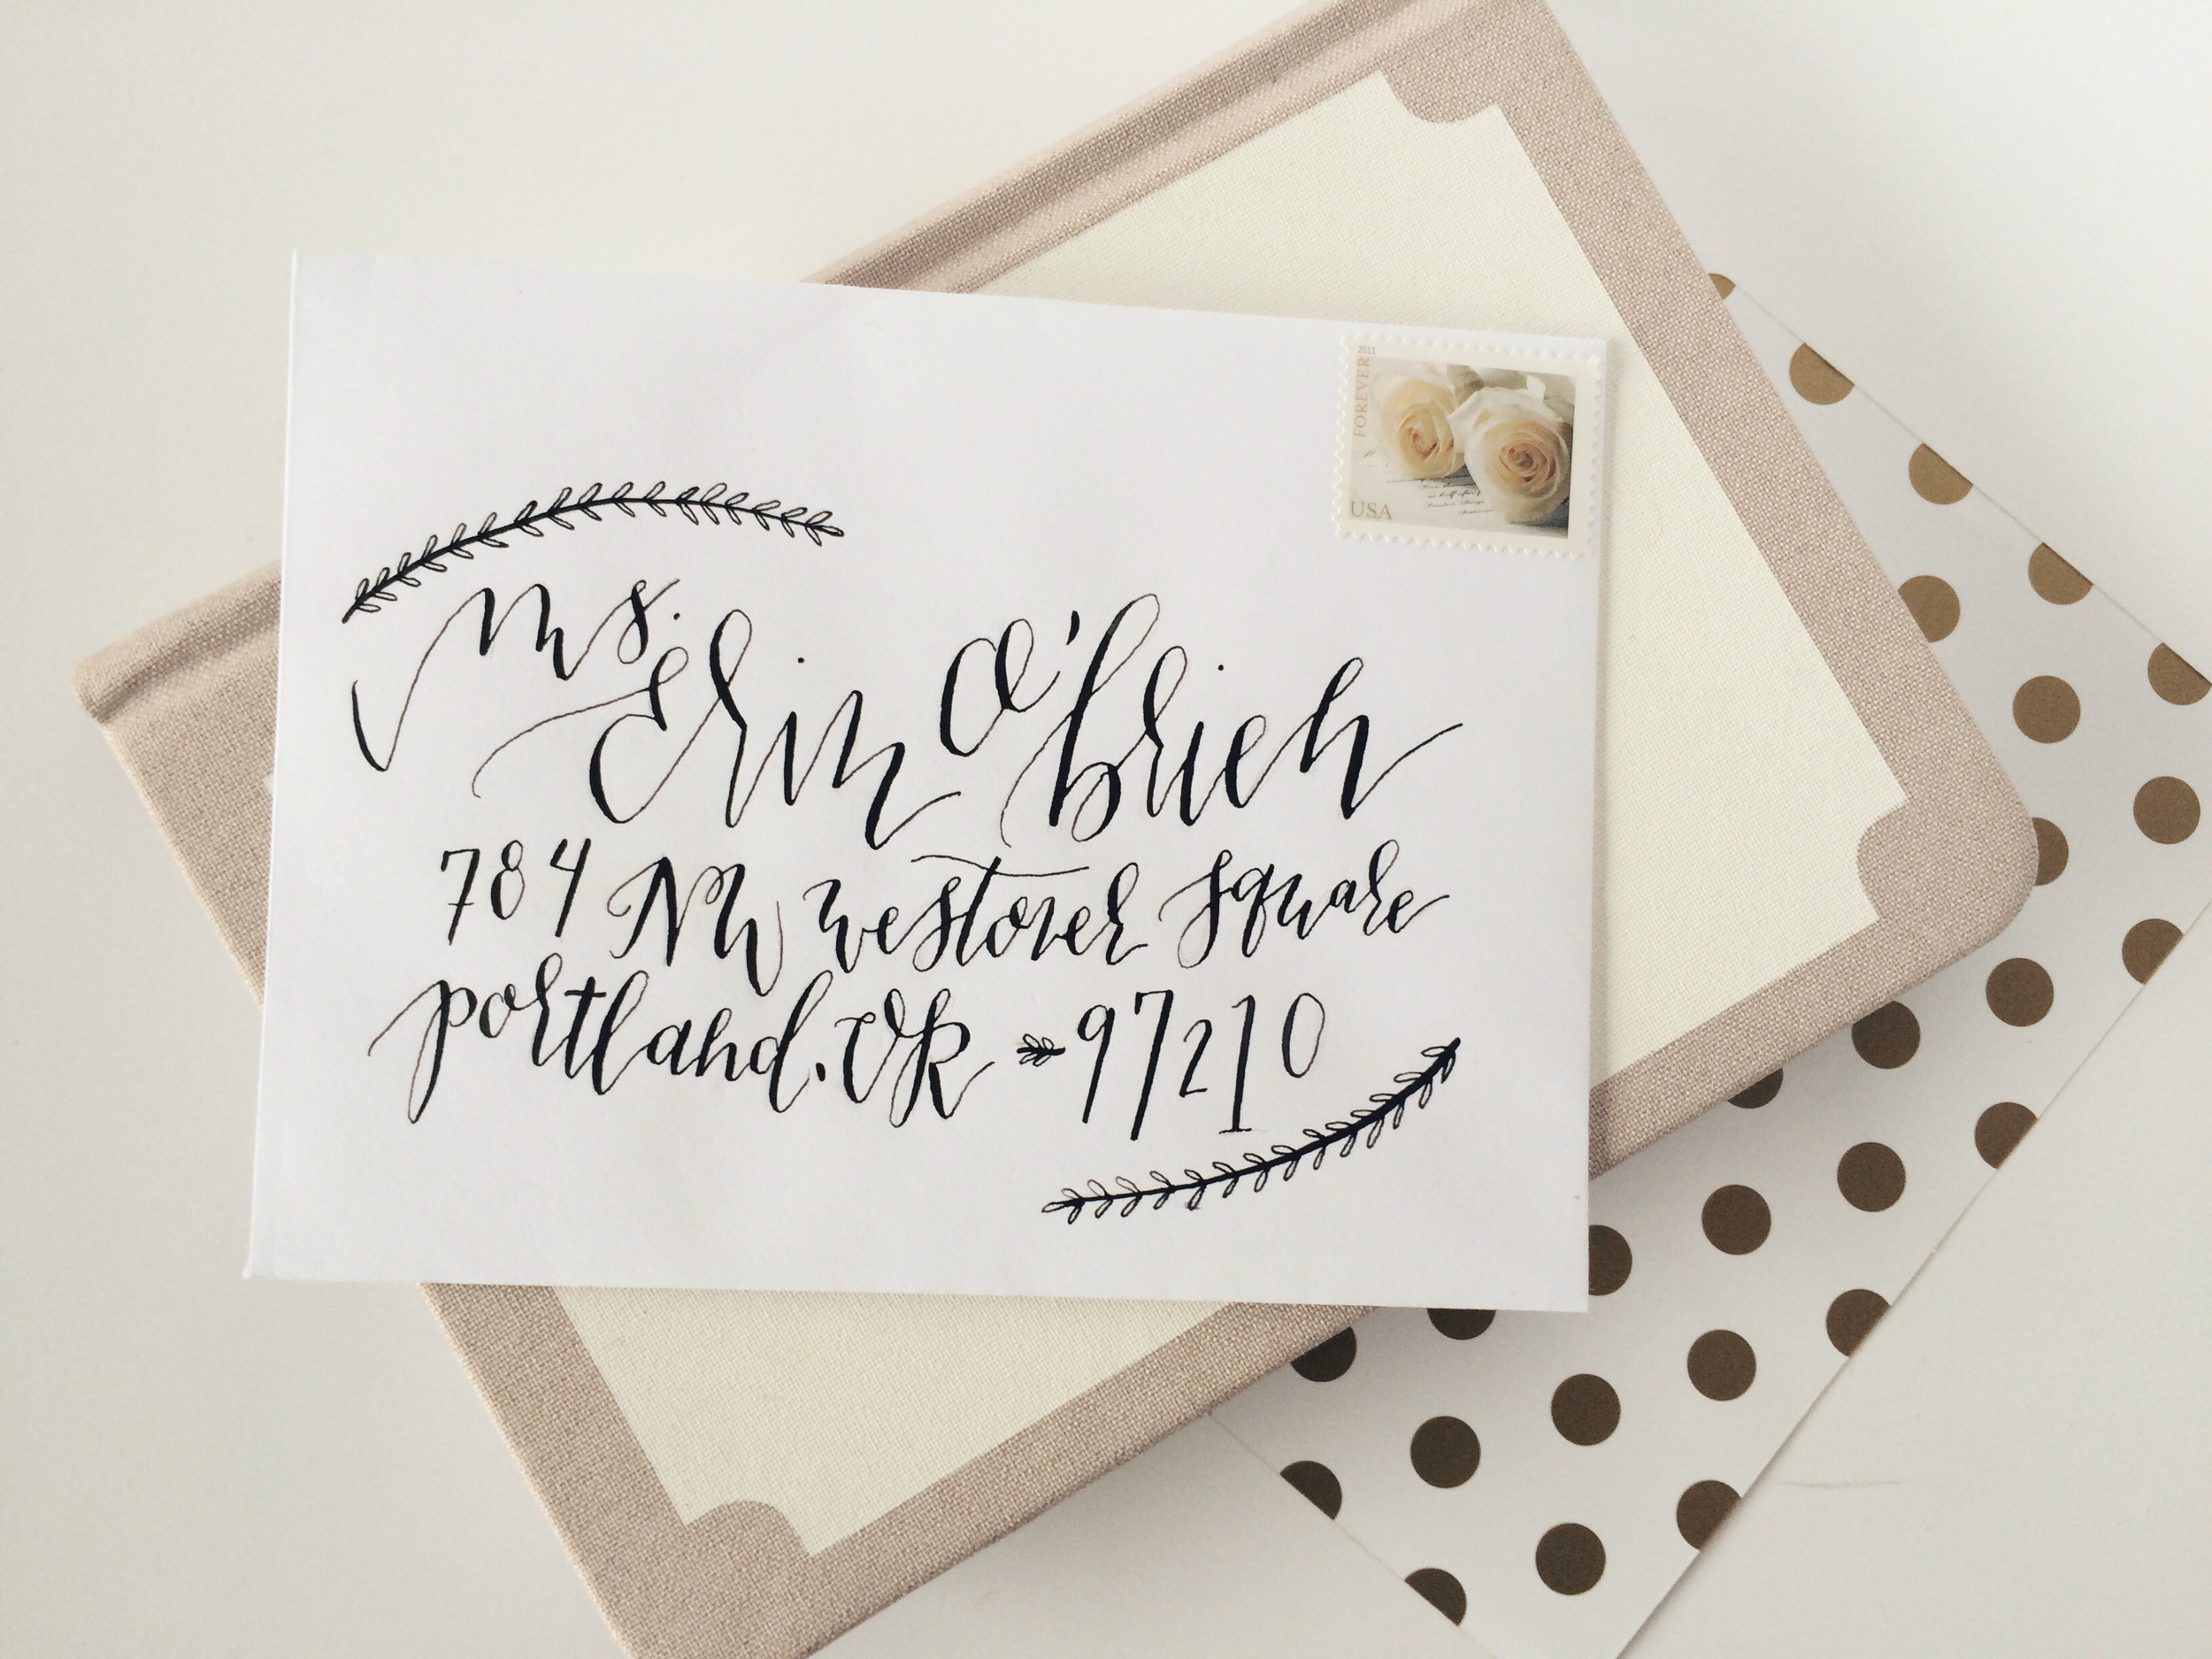 2011
FOREVER
USA
Ms.
Erin O'Brien
784 NW Westover Square
Portland, OR 97210